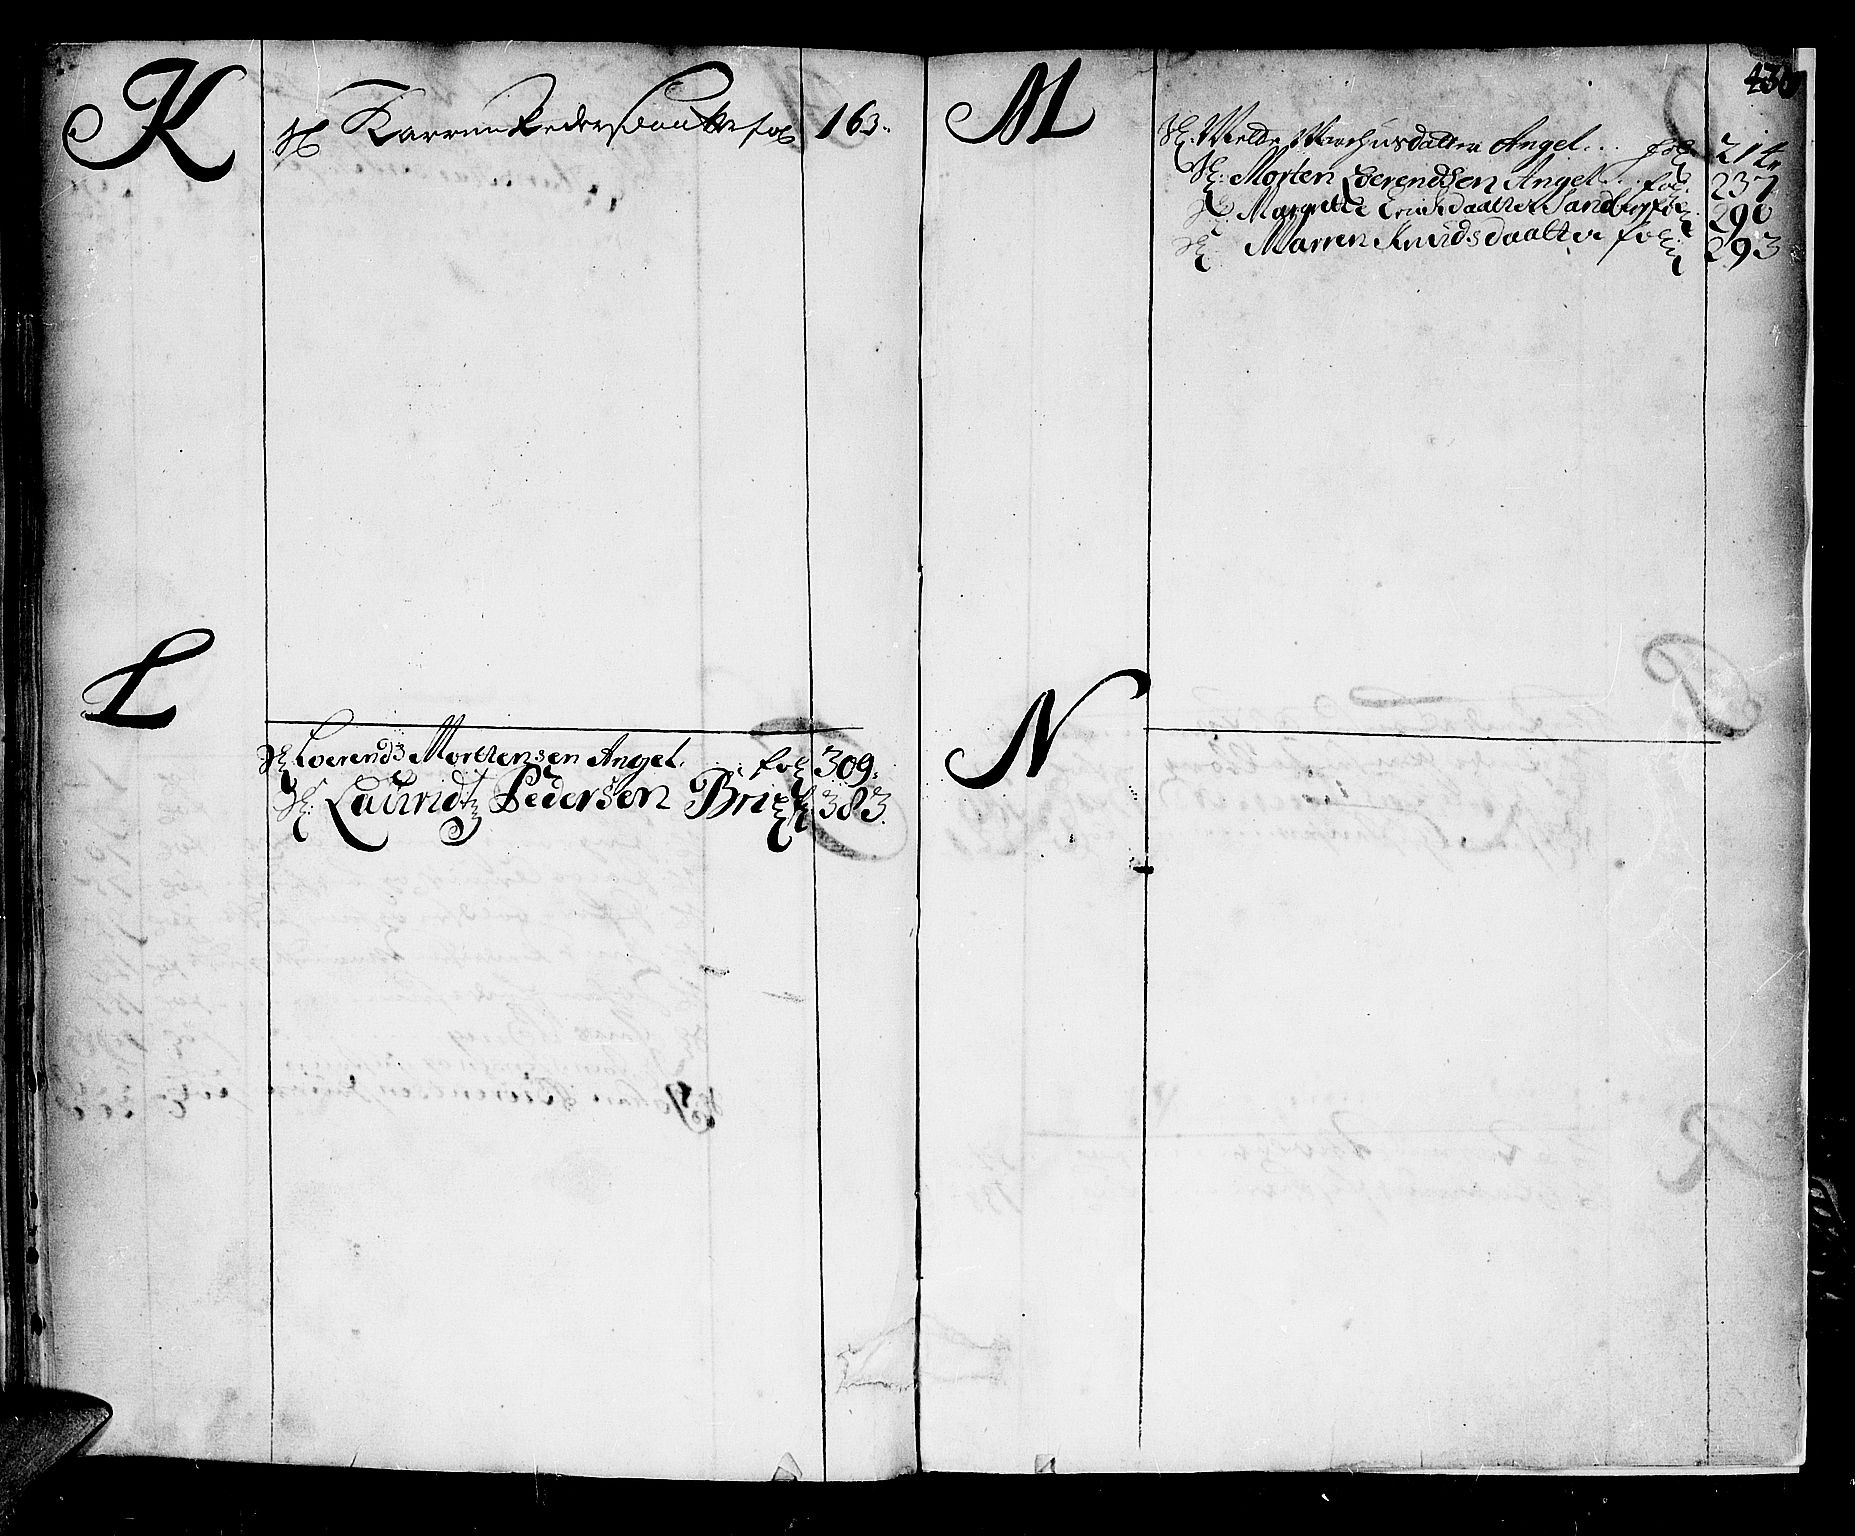 K
Sl. Karren Pedersdaatter fol 163.
L
Sl. Loerends Morttensen Angel. fol 309.
Sl. Lauridtz Pedersen Brix fol 383.
M
430
Sl. Melde Marchusdatter Angel... fol. 214.
Sl. Morten Loerendsen Angel... fol. 237
Sl. Margrette daatter Sandberg fol. 290
Sl. Marren Knudsdaatter fol. 293
N